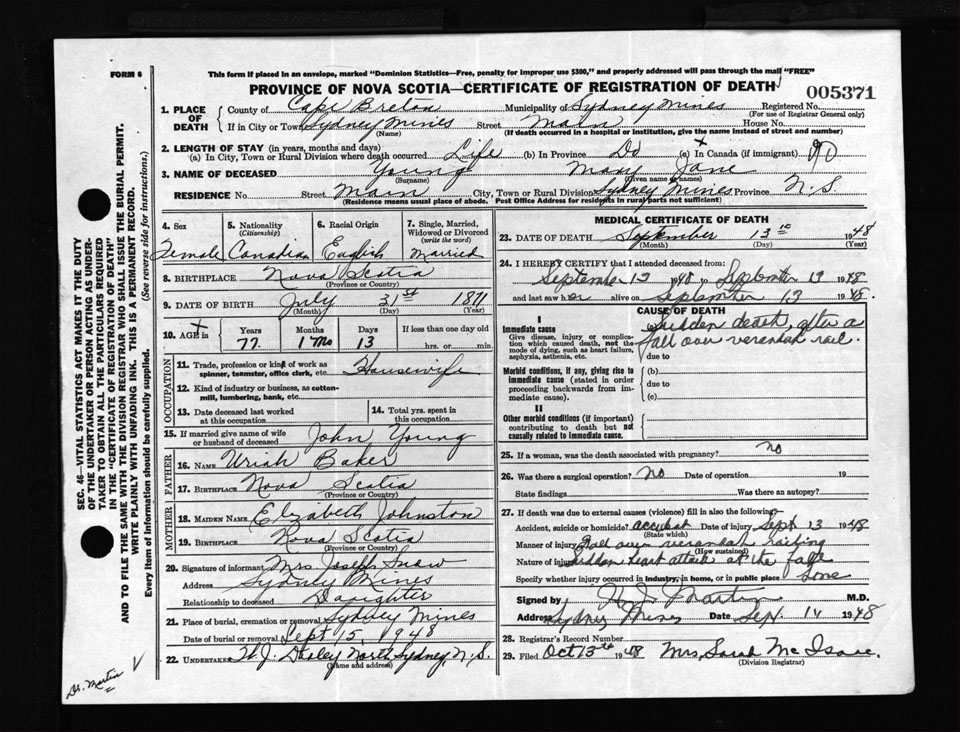 FORM 6
This form if placed in an envelope, marked "Dominion Statistics—Free, penalty for improper use $300," and properly addressed will pass through the mail "FREE"
PROVINCE OF NOVA SCOTIA—CERTIFICATE OF REGISTRATION OF DEATH
005371
1. PLACE OF DEATH County of Cape Breton Municipality of Sydney Mines Registered No.
(For use of Registrar General only)
If in City or Town Sydney Mines Street Main House No.
(Name) (If death occurred in a hospital or institution, give the name instead of street and number)
2. LENGTH OF STAY (in years, months and days)
(a) In City, Town or Rural Division where death occurred Life (b) In Province Do (c) In Canada (if immigrant) DO
3. NAME OF DECEASED Young Mary Jane
(Surname) (Given names)
RESIDENCE No. Street Main City, Town or Rural Division Sydney Mines Province N.S.
(Residence means usual place of abode. Post Office Address for residents in rural parts not sufficient)
4. Sex Female
5. Nationality (Citizenship) Canadian
6. Racial Origin English
7. Single, Married, Widowed or Divorced (write the word) Married
8. BIRTHPLACE Nova Scotia
(Province or Country)
9. DATE OF BIRTH July 31st 1871
(Month) (Day) (Year)
10. AGE in Years 77 Months 1 Mo Days 13 If less than one day old hrs. or min.
OCCUPATION
11. Trade, profession or kind of work as spinner, teamster, office clerk, etc. Housewife
12. Kind of industry or business, as cotton-mill, lumbering, bank, etc.
13. Date deceased last worked at this occupation
14. Total yrs. spent in this occupation
15. If married give name of wife or husband of deceased John Young
FATHER
16. NAME Uriah Baker
17. BIRTHPLACE Nova Scotia
(Province or Country)
MOTHER
18. MAIDEN NAME Elizabeth Johnston
19. BIRTHPLACE Nova Scotia
(Province or Country)
20. Signature of informant Mrs Joseph Snow
Address Sydney Mines
Relationship to deceased Daughter
21. Place of burial, cremation or removal Sydney Mines
Date of burial or removal Sept 15, 1948
22. UNDERTAKER W. J. Dooley North Sydney, N.S.
(Name and address)
MEDICAL CERTIFICATE OF DEATH
23. DATE OF DEATH September 13th 1948
(Month) (Day) (Year)
24. I HEREBY CERTIFY that I attended deceased from:
September 13 1948 to September 13 1948
and last saw her alive on September 13 1948.
CAUSE OF DEATH
I
Immediate cause
Give disease, injury or complication which caused death, not the mode of dying, such as heart failure, asphyxia, asthenia, etc.
(a) Sudden death, after a
fall over verandah rail.
due to
Morbid conditions, if any, giving rise to immediate cause (stated in order proceeding backwards from immediate cause).
(b)
due to
(c)
II
Other morbid conditions (if important) contributing to death but not causally related to immediate cause.
25. If a woman, was the death associated with pregnancy? no
26. Was there a surgical operation? no Date of operation 19
State findings Was there an autopsy?
27. If death was due to external causes (violence) fill in also the following:
Accident, suicide or homicide? accident Date of injury Sept 13 1948
(State which)
Manner of injury Fall over verandah railing
(How sustained)
Nature of injury Sudden heart attack at the fall
Specify whether injury occurred in industry, in home, or in public place home
Signed by H J Martin M.D.
Address Sydney Mines Date Sept. 14 1948
28. Registrar's Record Number
29. Filed Oct 13th 1948 Mrs, Sarah McIsaac.
(Division Registrar)
SEC. 46—VITAL STATISTICS ACT MAKES IT THE DUTY
OF THE UNDERTAKER OR PERSON ACTING AS UNDER-
TAKER TO OBTAIN ALL THE PARTICULARS REQUIRED
IN THE "CERTIFICATE OF REGISTRATION OF DEATH"
AND TO FILE THE SAME WITH THE DIVISION REGISTRAR WHO SHALL ISSUE THE BURIAL PERMIT.
WRITE PLAINLY WITH UNFADING INK. THIS IS A PERMANENT RECORD.
Every item of information should be carefully supplied. (See reverse side for instructions.)
Dr. Martin